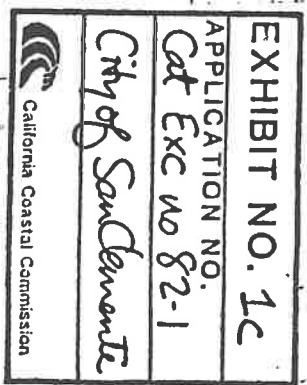 EXHIBIT NO. 1C
APPLICATION NO.
Cat Exc no 82-1
City of San Clemente
California Coastal Commission